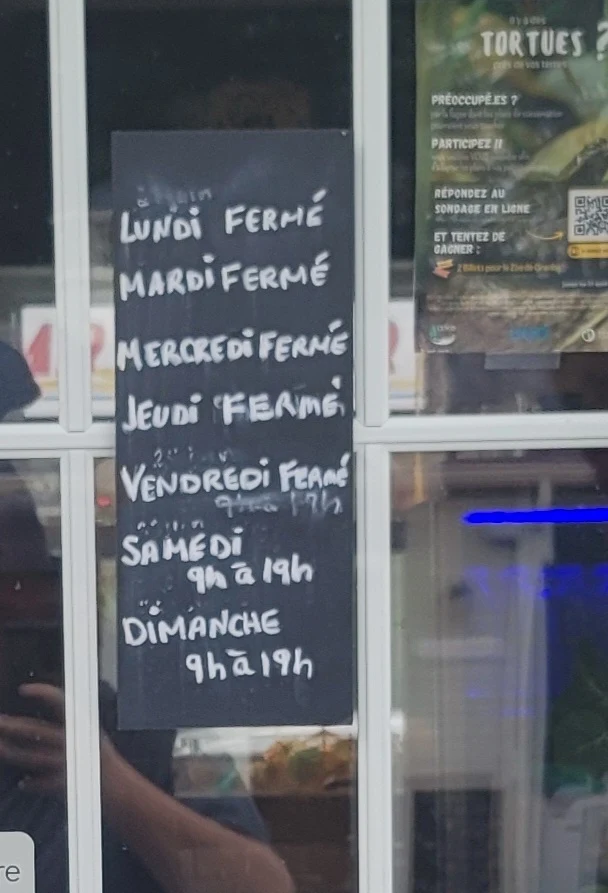 LUNDI FERMÉ
MARDI FERMÉ
MERCREDI FERMÉ
JEUDI FERMÉ
VENDREDI FERMÉ
9h à 19h
SAMEDI
9h à 19h
DIMANCHE
9h à 19h
TORTUES ?
PRÉOCCUPÉ.ES ?
PARTICIPEZ !!
RÉPONDEZ AU
SONDAGE EN LIGNE
ET TENTEZ DE
GAGNER :
re